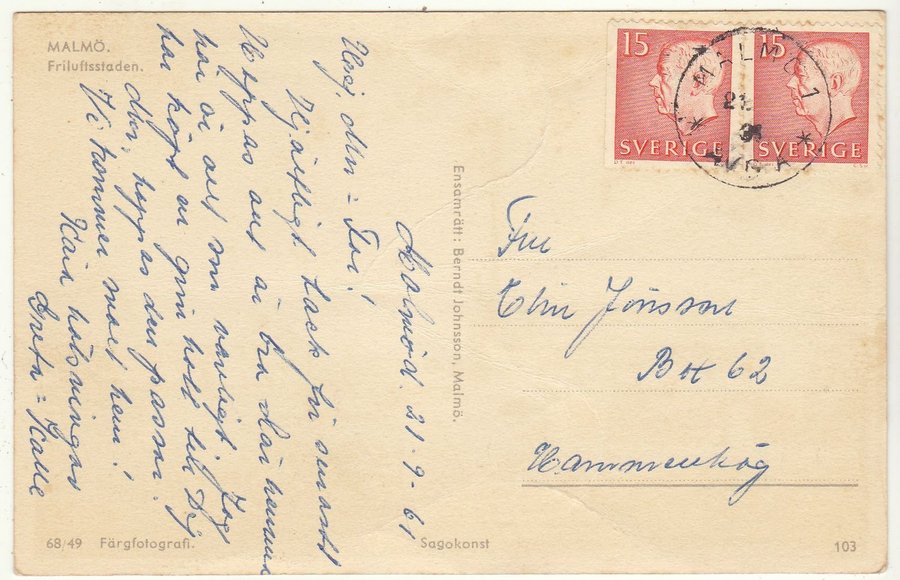 MALMÖ.
Friluftsstaden.
Malmö d. 21-9-61
Hej, Elin - Tri!
Hjärtligt tack för senast
Hoppas allt är bra där hemma
här är allt som vanligt. Jag
har köpt en grön hatt till Dig
Elin, hoppas den passar.
Vi kommer snart hem!
Kära hälsningar
Greta - Kalle
Ensamrätt: Berndt Johnsson, Malmö.
15 15
SVERIGE SVERIGE
MALMÖ 1
21
AVG A
Fru
Elin Jönsson
Box 62
Hammenhög
68/49 Färgfotografi.
Sagokonst
103